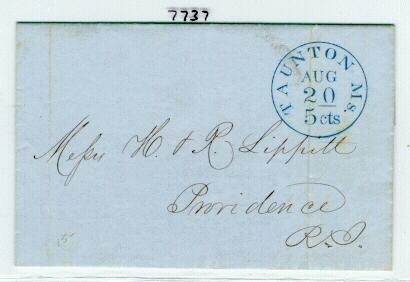 7737
TAUNTON Ms.
AUG
20
5 cts
Messrs H. & R. Lippitt
Providence
R.I.
15